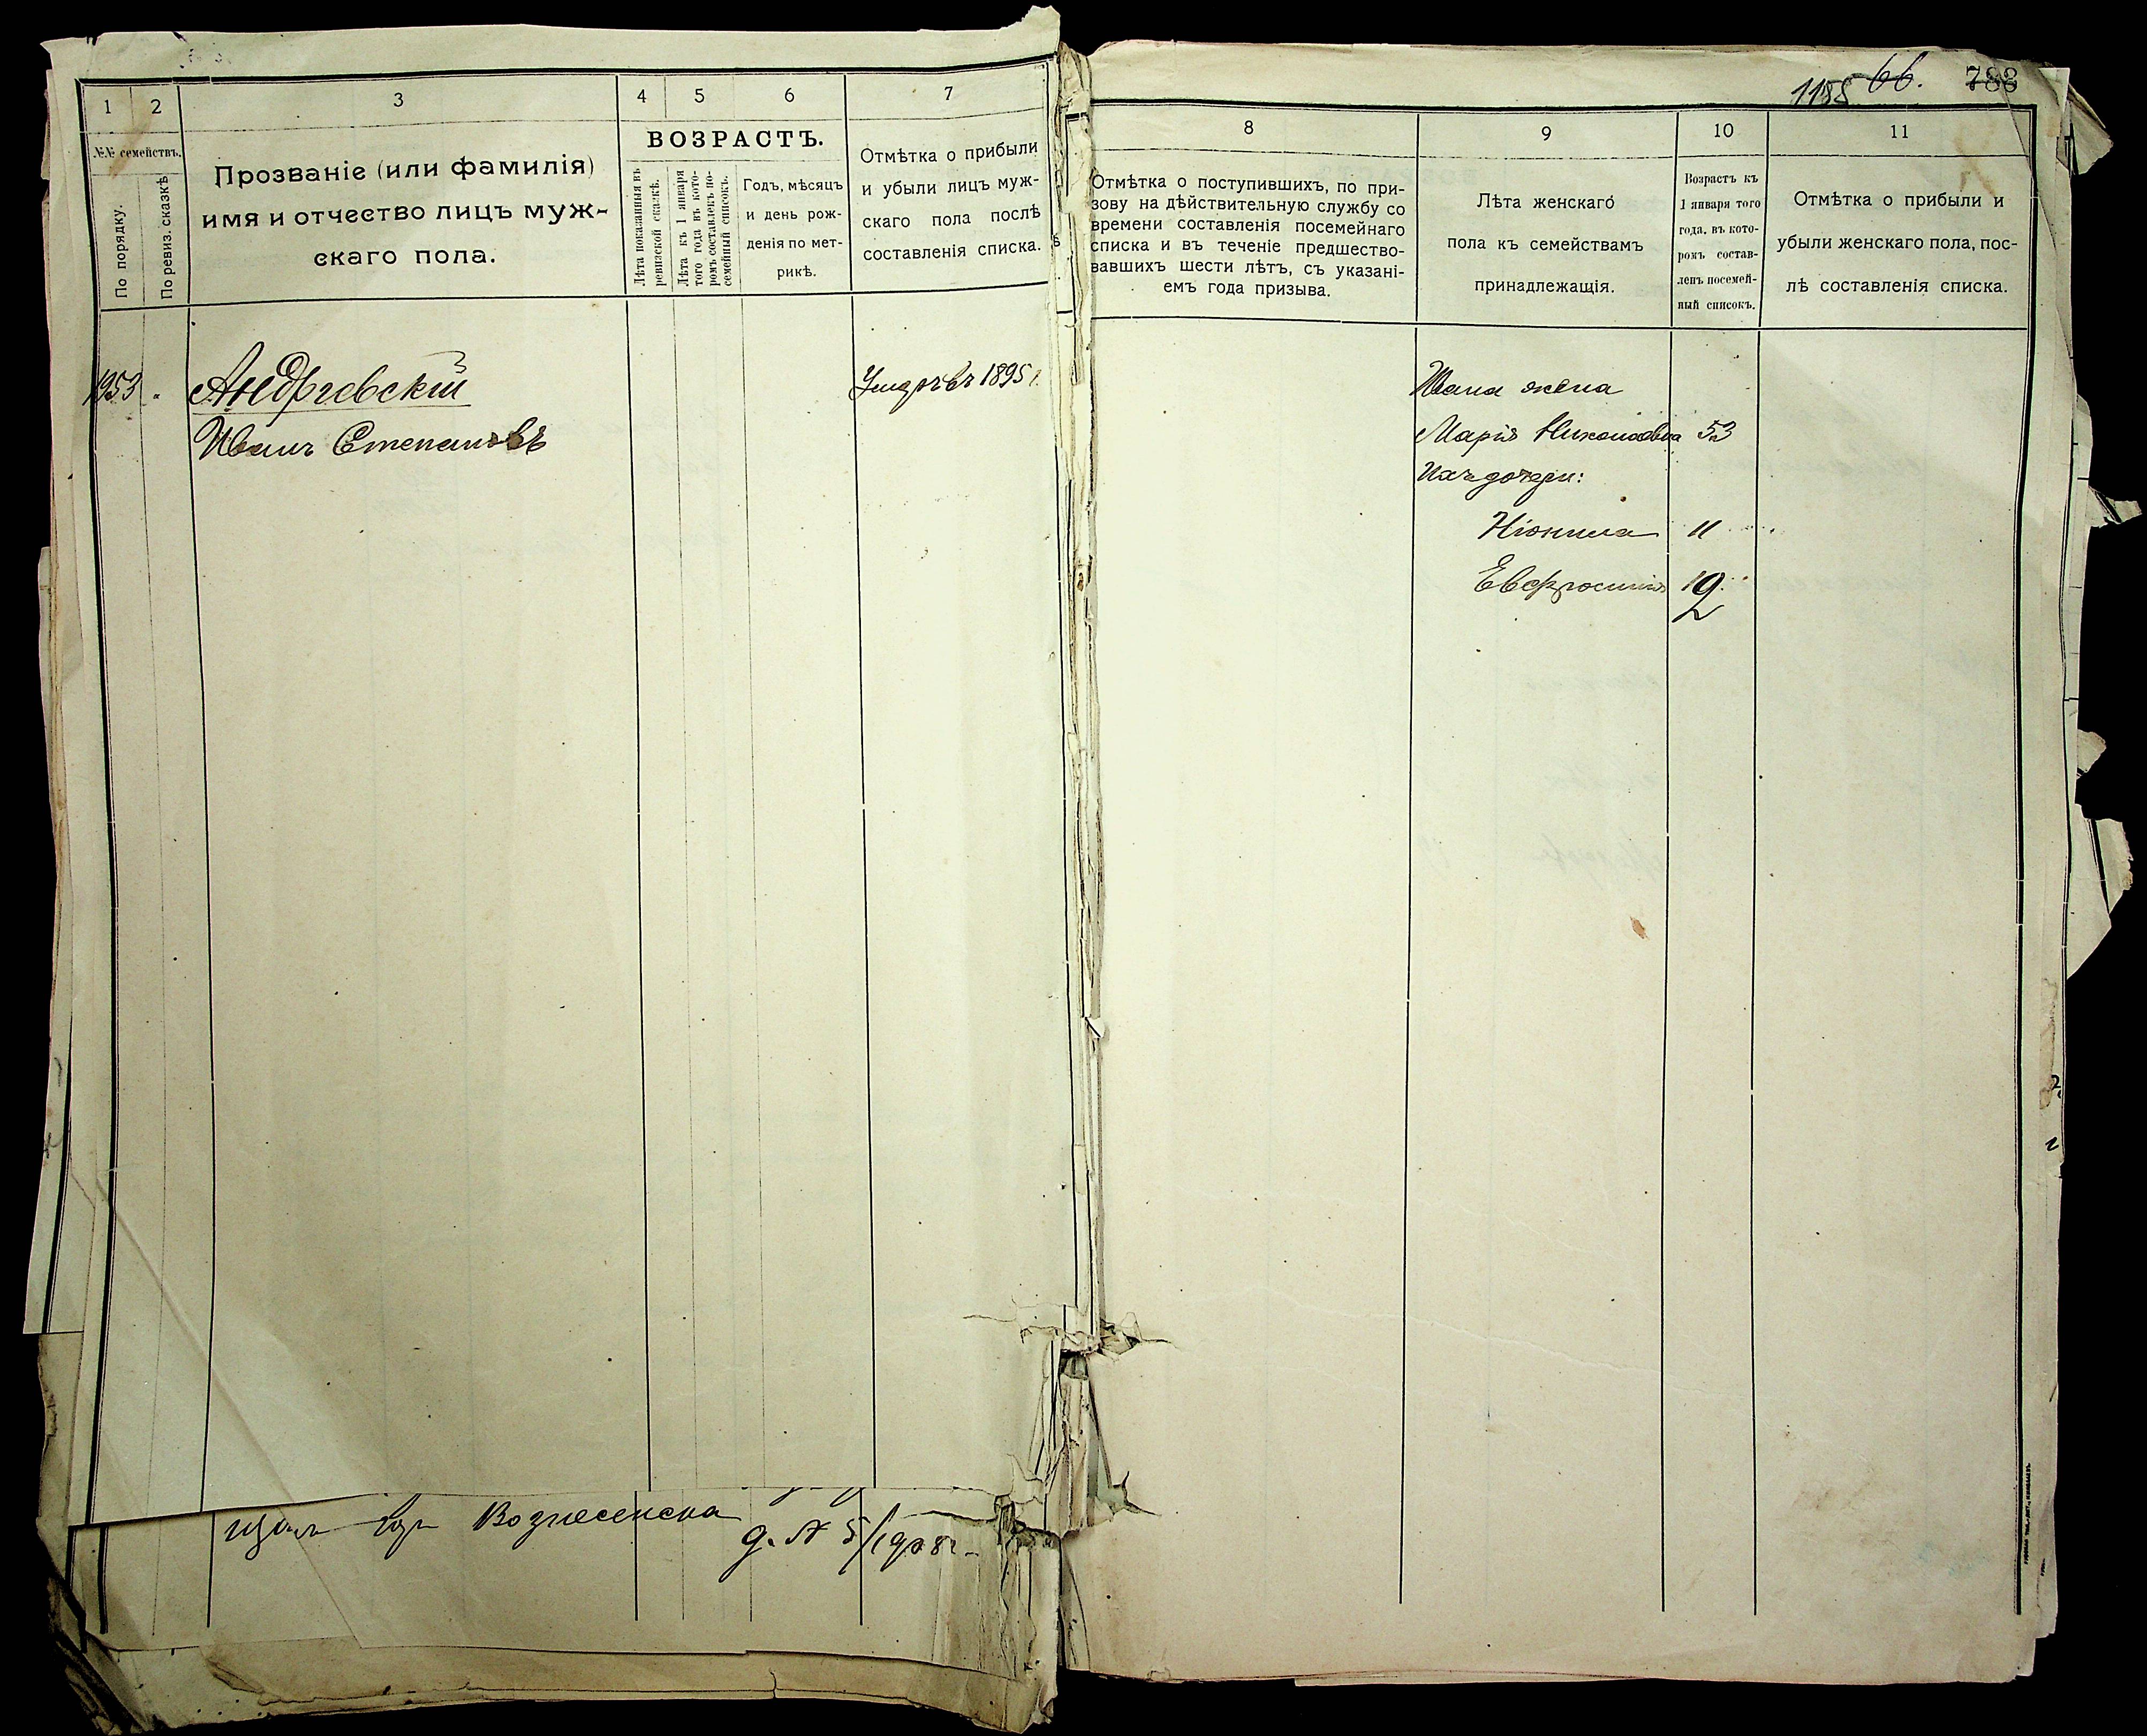 1 2 3 4 5 6 7
№№ семействъ.
По порядку.
По ревиз. сказкѣ
Прозваніе (или фамилія)
имя и отчество лицъ муж-
скаго пола.
ВОЗРАСТЪ.
Лѣта показанныя въ
ревизской сказкѣ.
Лѣта къ 1 января
того года въ кото-
ромъ составленъ по-
семейный списокъ.
Годъ, мѣсяцъ
и день рож-
денія по мет-
рикѣ.
Отмѣтка о прибыли
и убыли лицъ муж-
скаго пола послѣ
составленія списка.
1953
Андріевскій
Иванъ Степановъ
Умеръ въ 1895 г.
Вознесенска
д. № 5/1908 г.
1188 66. 783
8 9 10 11
Отмѣтка о поступившихъ, по при-
зову на дѣйствительную службу со
времени составленія посемейнаго
списка и въ теченіе предшество-
вавшихъ шести лѣтъ, съ указані-
емъ года призыва.
Лѣта женскаго
пола къ семействамъ
принадлежащія.
Возрастъ къ
1 января того
года, въ кото-
ромъ состав-
ленъ посемей-
ный списокъ.
Отмѣтка о прибыли и
убыли женскаго пола, пос-
лѣ составленія списка.
Ивана жена
Марія Николаевна 53
Ихъ дочери:
Неонила 11
Евфросинія